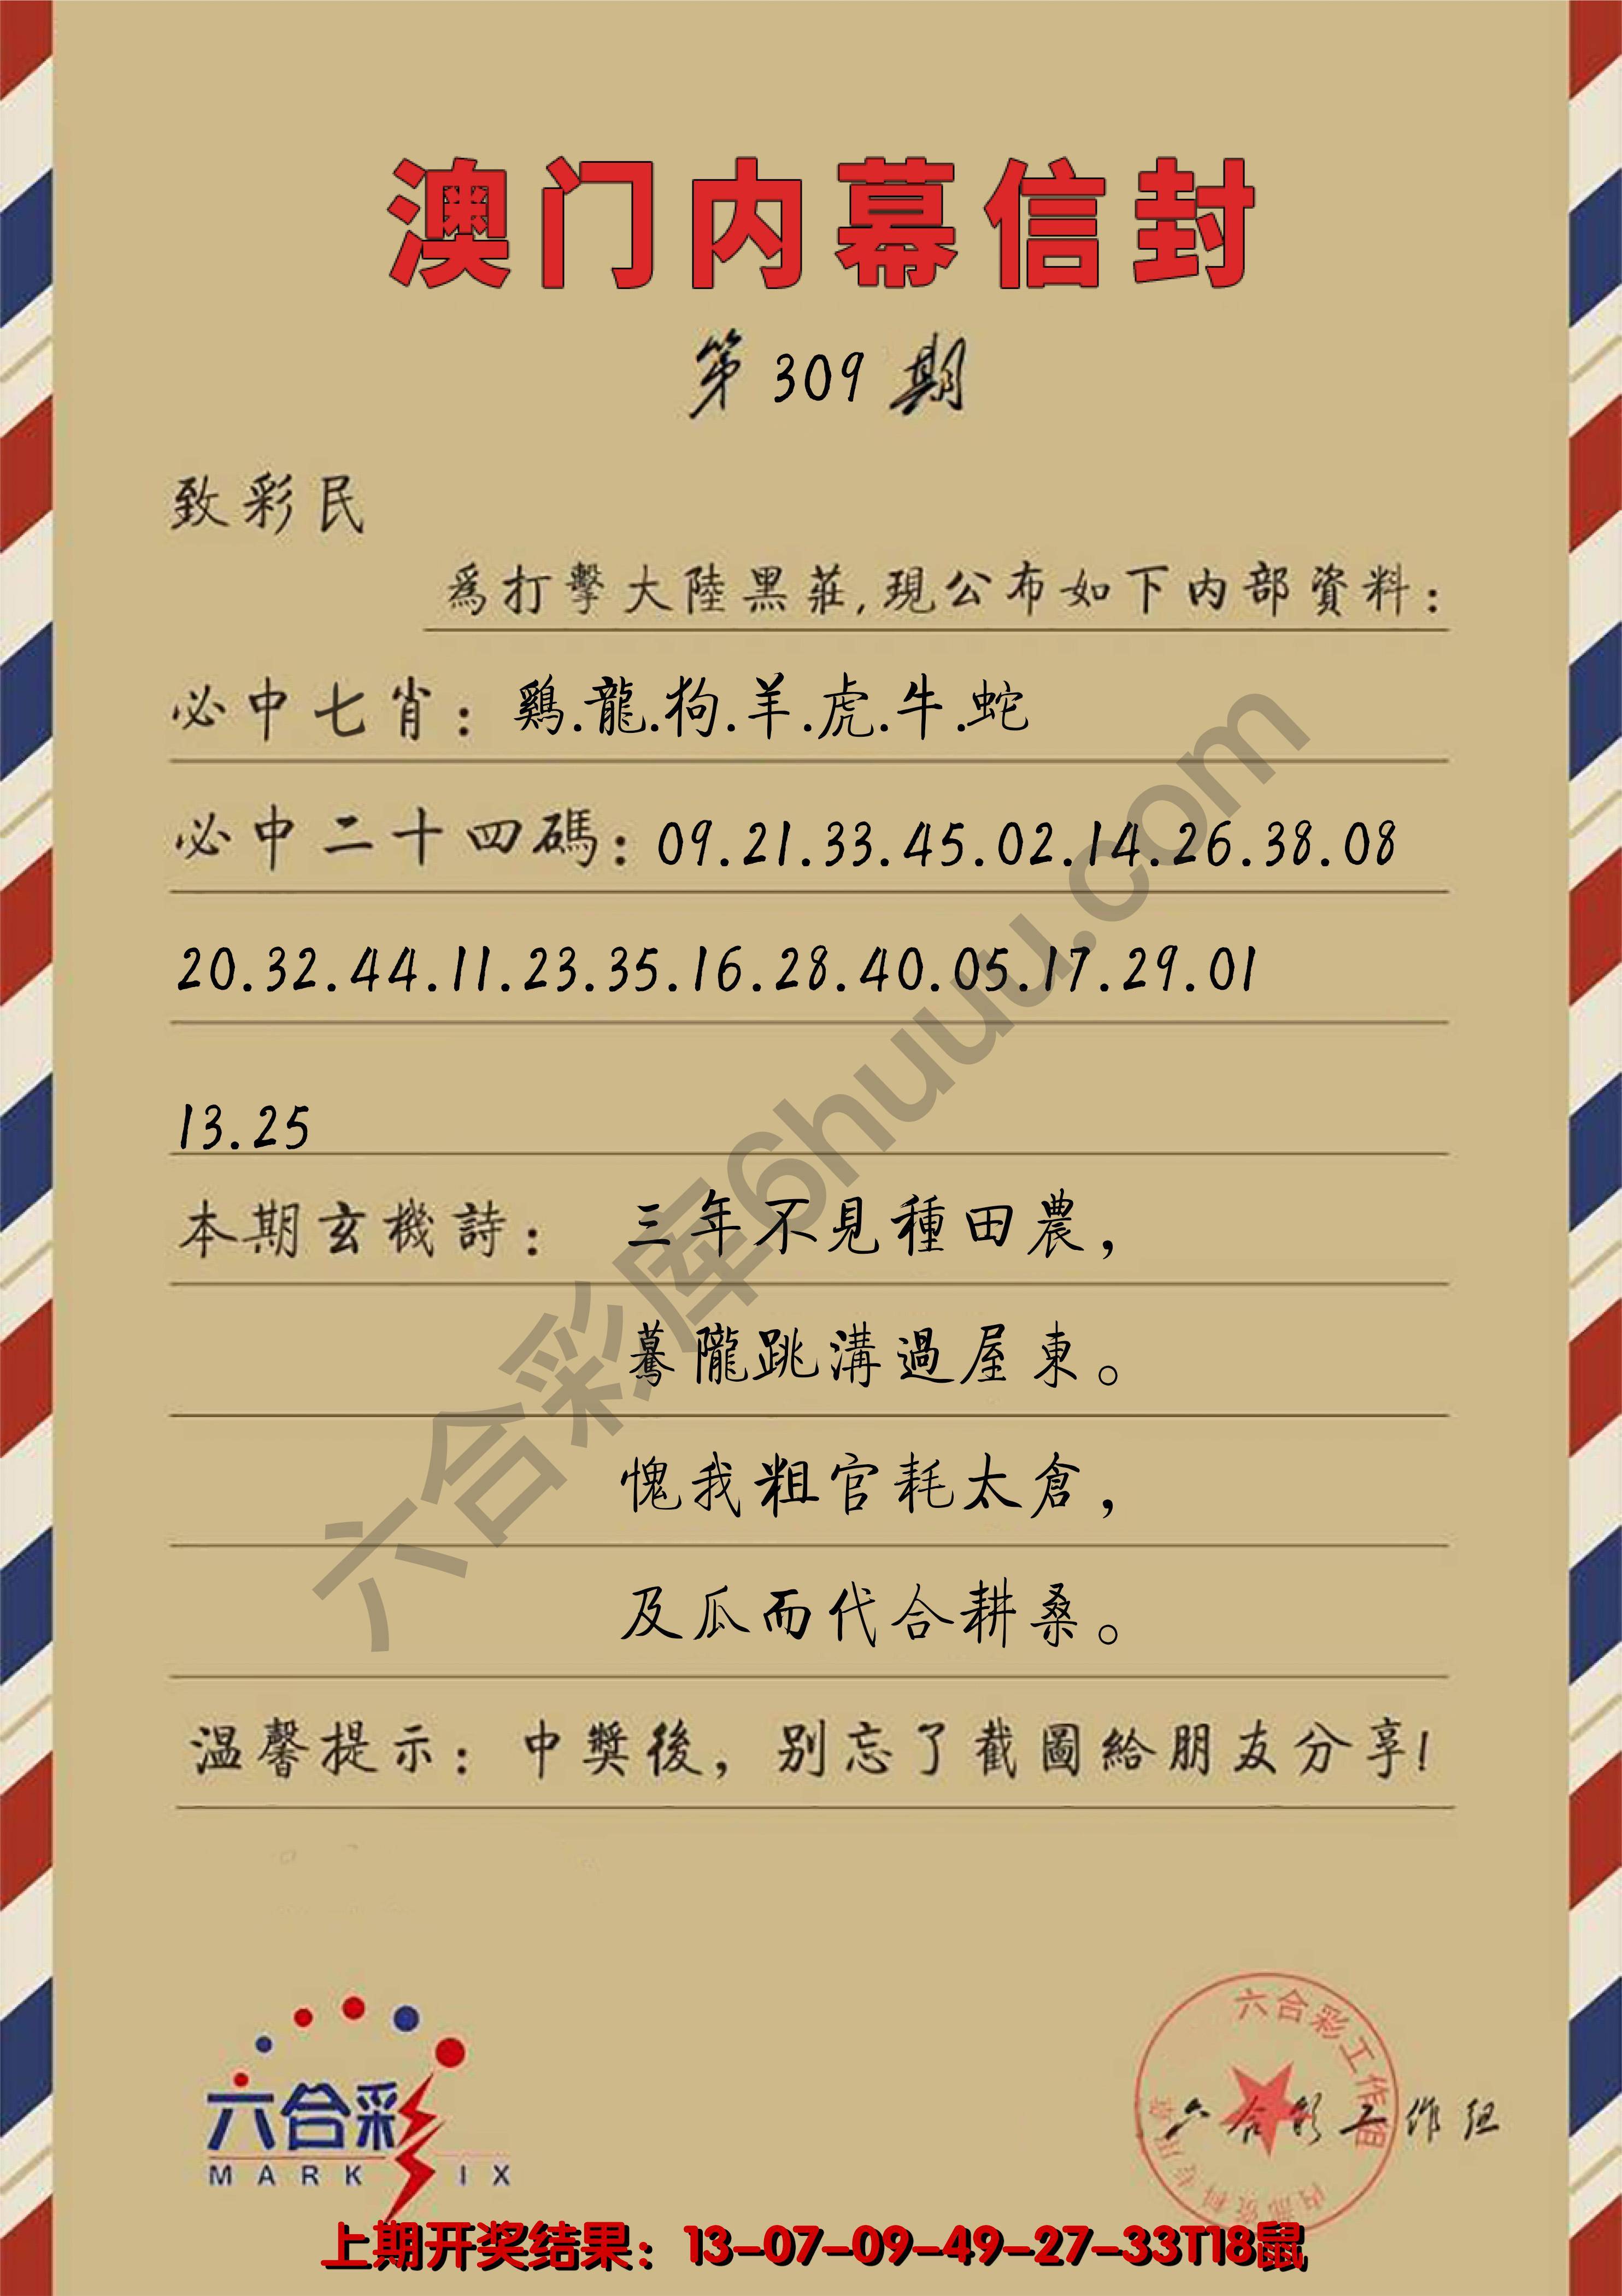 澳门内幕信封
第 309 期
致彩民
為打擊大陸黑莊,現公布如下内部資料:
必中七肖: 鷄.龍.狗.羊.虎.牛.蛇
必中二十四碼: 09.21.33.45.02.14.26.38.08
20.32.44.11.23.35.16.28.40.05.17.29.01
13.25
本期玄機詩: 三年不見種田農,
驀隴跳溝過屋東。
愧我粗官耗太倉,
及瓜而代合耕桑。
温馨提示: 中獎後, 别忘了截圖給朋友分享!
六合彩库6huuu.com
六合彩
MARK IX
六合彩工作组
内部资料专用章
六合彩工作组
上期开奖结果: 13-07-09-49-27-33T18鼠